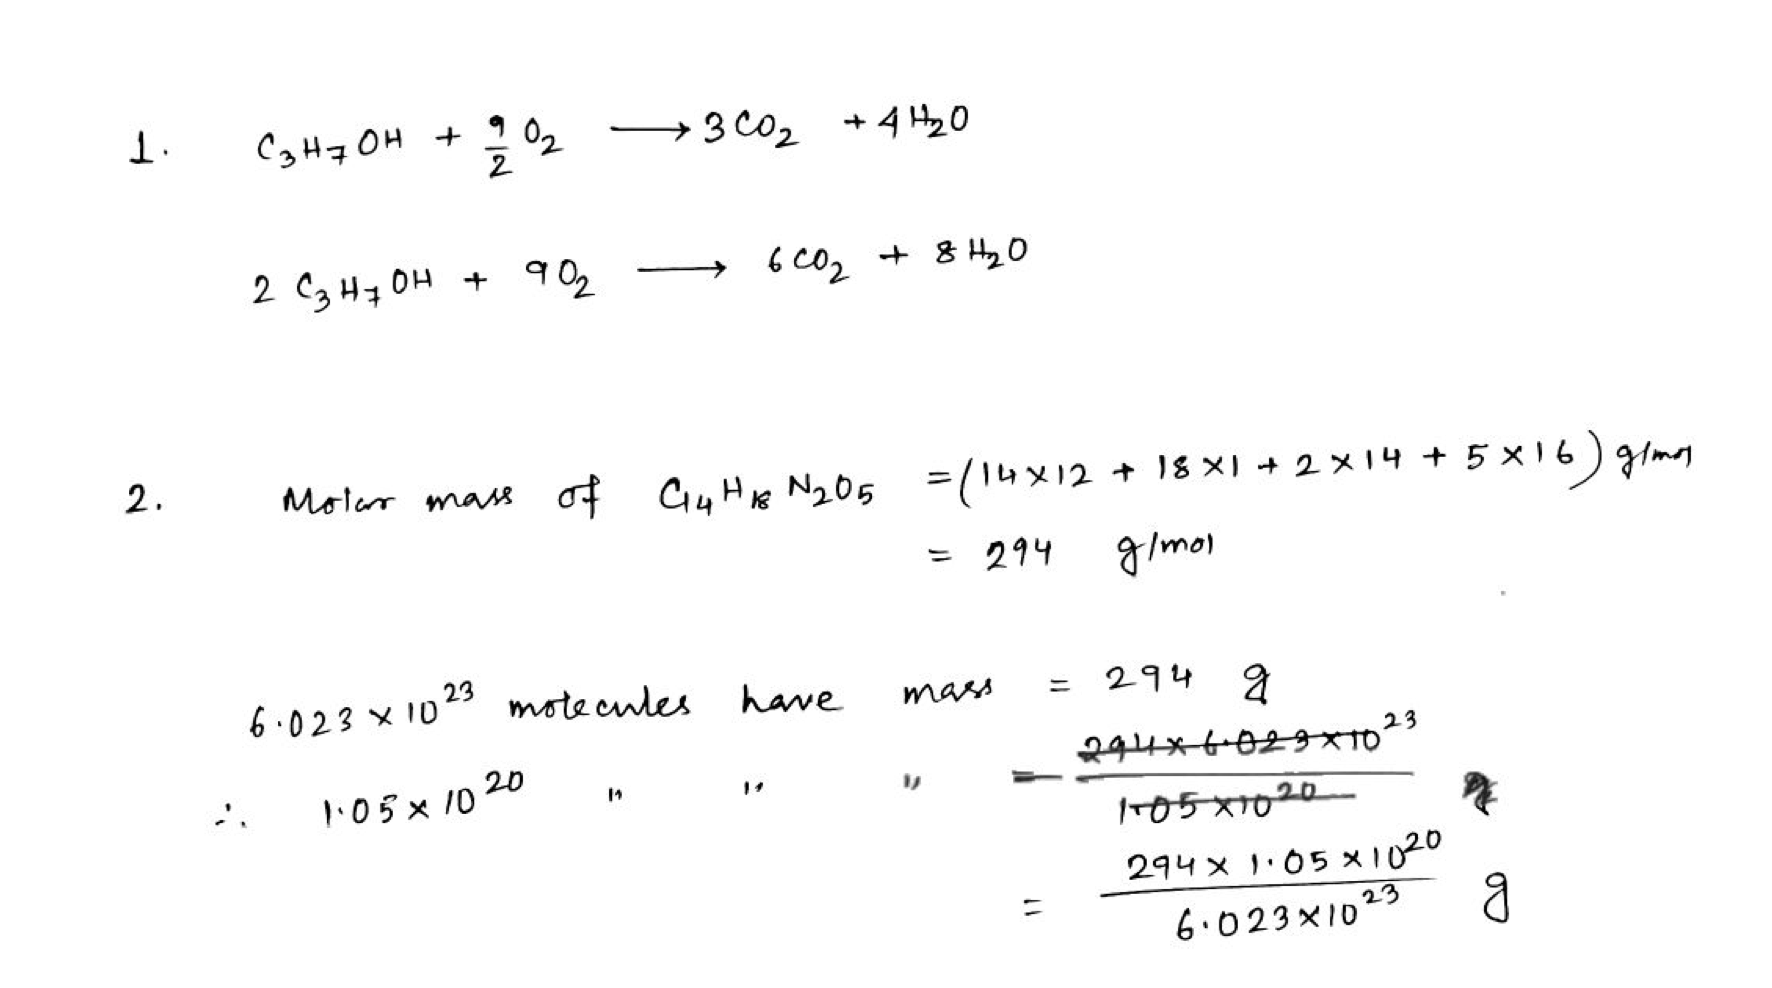 1. C₃H₇OH + 9/2 O₂ ⟶ 3CO₂ + 4H₂O
2 C₃H₇OH + 9O₂ ⟶ 6CO₂ + 8H₂O
2. Molar mass of C₁₄H₁₈N₂O₅ = (14×12 + 18×1 + 2×14 + 5×16) g/mol
= 294 g/mol
6.023×10²³ molecules have mass = 294 g
∴ 1.05×10²⁰ " " " = 294×6.023×10²³ / 1.05×10²⁰ g
= 294×1.05×10²⁰ / 6.023×10²³ g